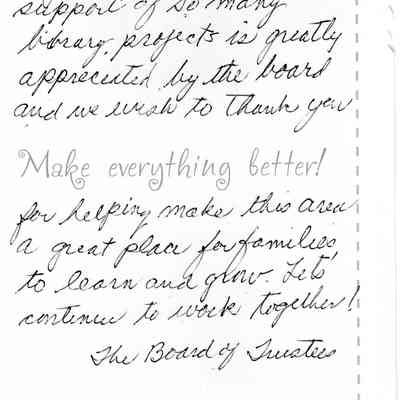 support of so many
library projects is greatly
appreciated by the board
and we wish to thank you
Make everything better!
for helping make this area
a great place for families
to learn and grow. Lets'
continue to work together!
The Board of Trustees